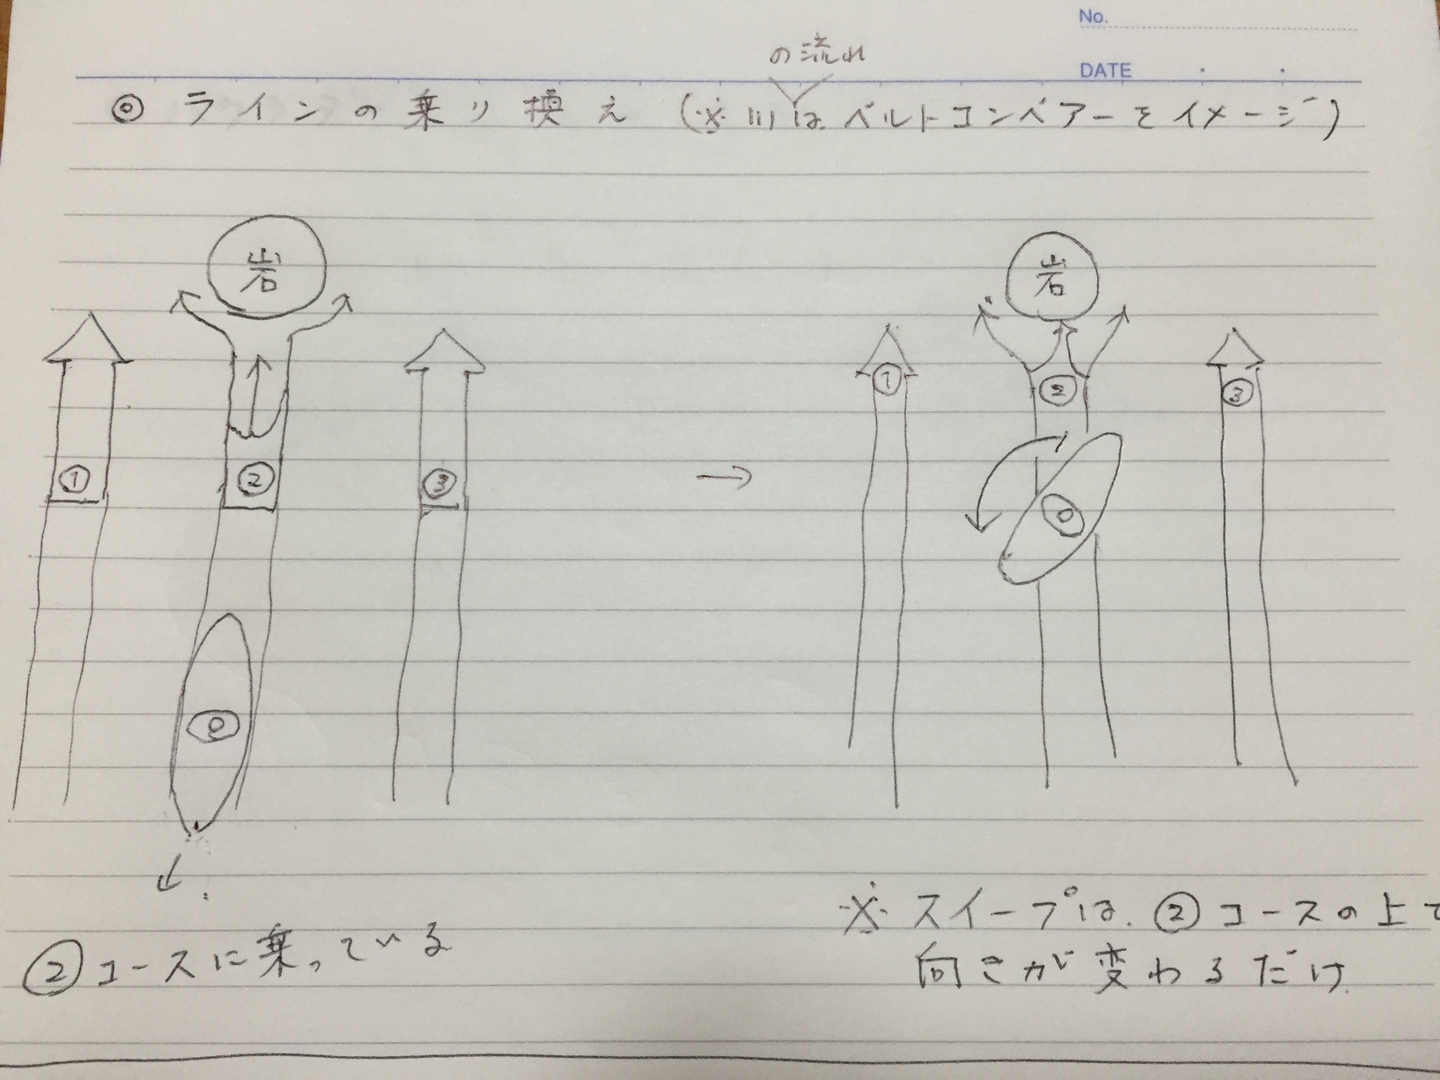 No.
DATE
の流れ
◎ ラインの乗り換え (※ 川は ベルトコンベアーをイメージ)
岩
岩
①
②
③
→
①
②
③
②コースに乗っている
※ スイープは、②コースの上で
向きが変わるだけ